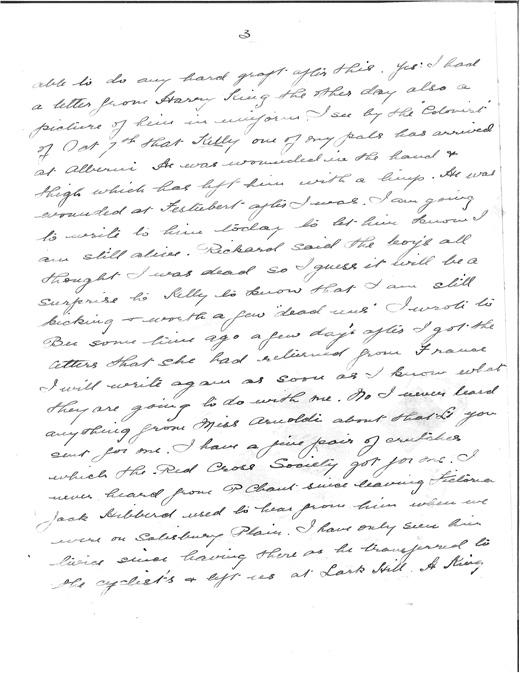 3
able to do any hard graft after this. Yes I had
a letter from Harry King the other day also a
picture of him in uniform. I see by the Colonist
of Oct 7th that Kelly one of my pals has arrived
at Alberni He was wounded in the hand &
thigh which has left him with a limp. He was
wounded at Festubert after I was. I am going
to write to him today to let him know I
am still alive. Rickard said the boys all
thought I was dead so I guess it will be a
surprise to Kelly to know that I am still
kicking & worth a few 'dead uns' I wrote to
Bee some time ago a few day's after I got the
letters that she had returned from France
I will write again as soon as I know what
they are going to do with me. No I never heard
anything from Miss Arnoldi about that £ you
sent for me. I have a fine pair of crutches
which the Red Cross Society got for me. I
never heard from P Chant since leaving Victoria
Jack Hibberd used to hear from him when we
were on Salisbury Plain. I have only seen him
twice since leaving there as he transferred to
the cyclist's & left us at Lark Hill. H King